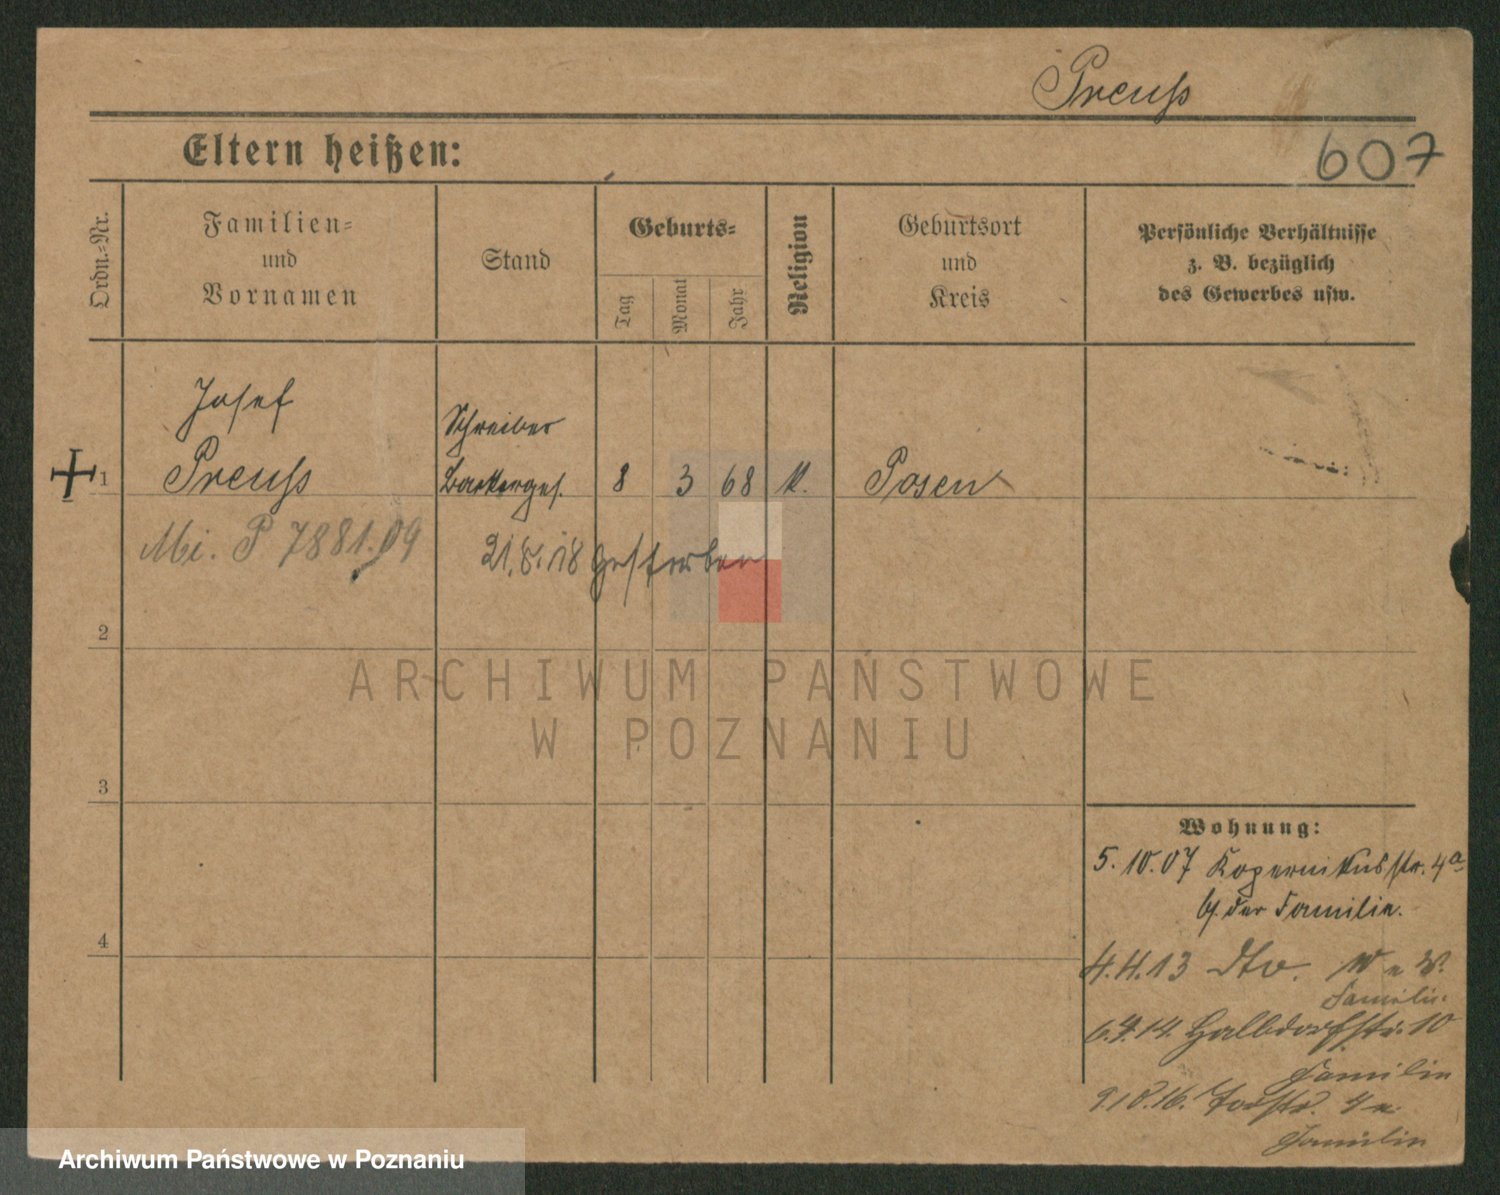 Preuß
Eltern heißen:
607
Ordn.-Nr.
Familien-
und
Vornamen
Stand
Geburts-
Tag
Monat
Jahr
Religion
Geburtsort
und
Kreis
Persönliche Verhältnisse
z. B. bezüglich
des Gewerbes usw.
Josef
Schreiber
1 Preuß 8 3 68 K. Posen
Mi. P 7881.09
21.8.18 gestorben
2
ARCHIWUM PAŃSTWOWE
W POZNANIU
3
Wohnung:
5.10.07 Kopernikusstr. 4a
b/ der Familie.
4
4.4.13 dto.
Familie
6.4.14. Halbdorfstr. 10
Familie
9.10.16.
Familie
Archiwum Państwowe w Poznaniu